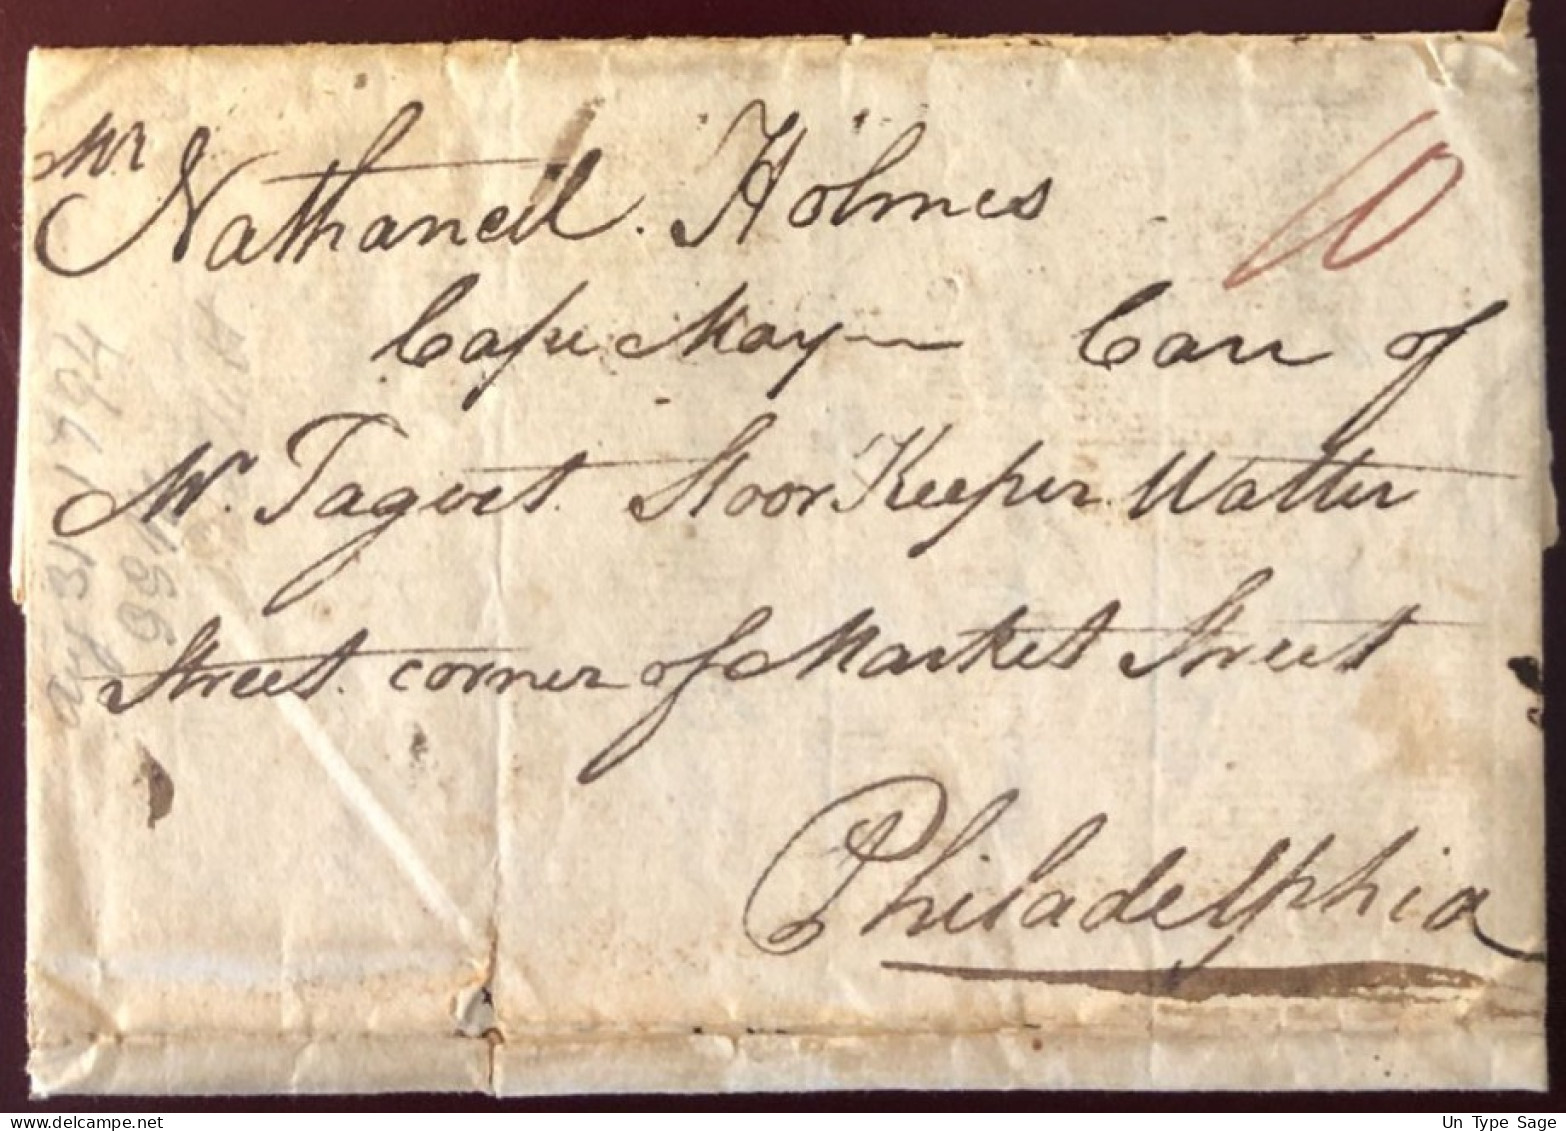 Mr
Nathaneil. Holmes
10
Cape May Care of
Mr. Tagert Stoor Keeper Watter
Street corner of Market Street
Philadelphia
31 1794
delcampe.net
Un Type Sage